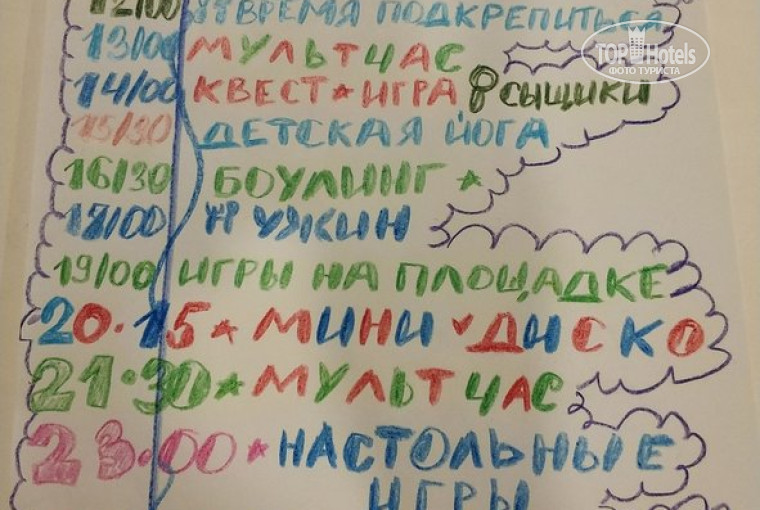 12/00 ВРЕМЯ ПОДКРЕПИТЬСЯ
13/00 МУЛЬТЧАС
14/00 КВЕСТ★ИГРА СЫЩИКИ
15/30 ДЕТСКАЯ ЙОГА
16/30 БОУЛИНГ ★
18/00 УЖИН
19/00 ИГРЫ НА ПЛОЩАДКЕ
20.15★ МИНИ ДИСКО
21.30★ МУЛЬТЧАС
23.00★ НАСТОЛЬНЫЕ
ИГРЫ
TOPHotels
ФОТО ТУРИСТА